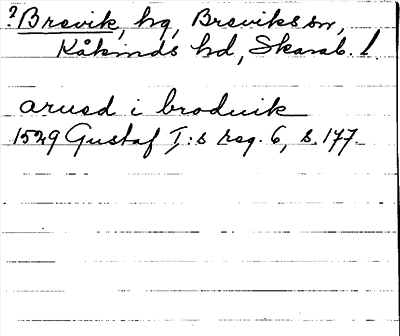 ?Brevik, hg, Breviks sn,
Kåkinds hd, Skarab. l.
arued i broduik
1529 Gustaf I:s reg. 6, s. 177